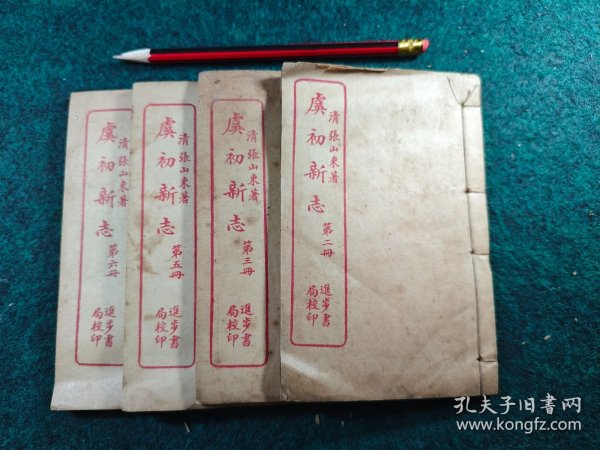 清 張山來著
虞初新志 第二冊
進步書
局校印
清 張山來著
虞初新志 第三冊
進步書
局校印
清 張山來著
虞初新志 第五冊
進步書
局校印
清 張山來著
虞初新志 第六冊
進步書
局校印
孔夫子旧书网
www.kongfz.com